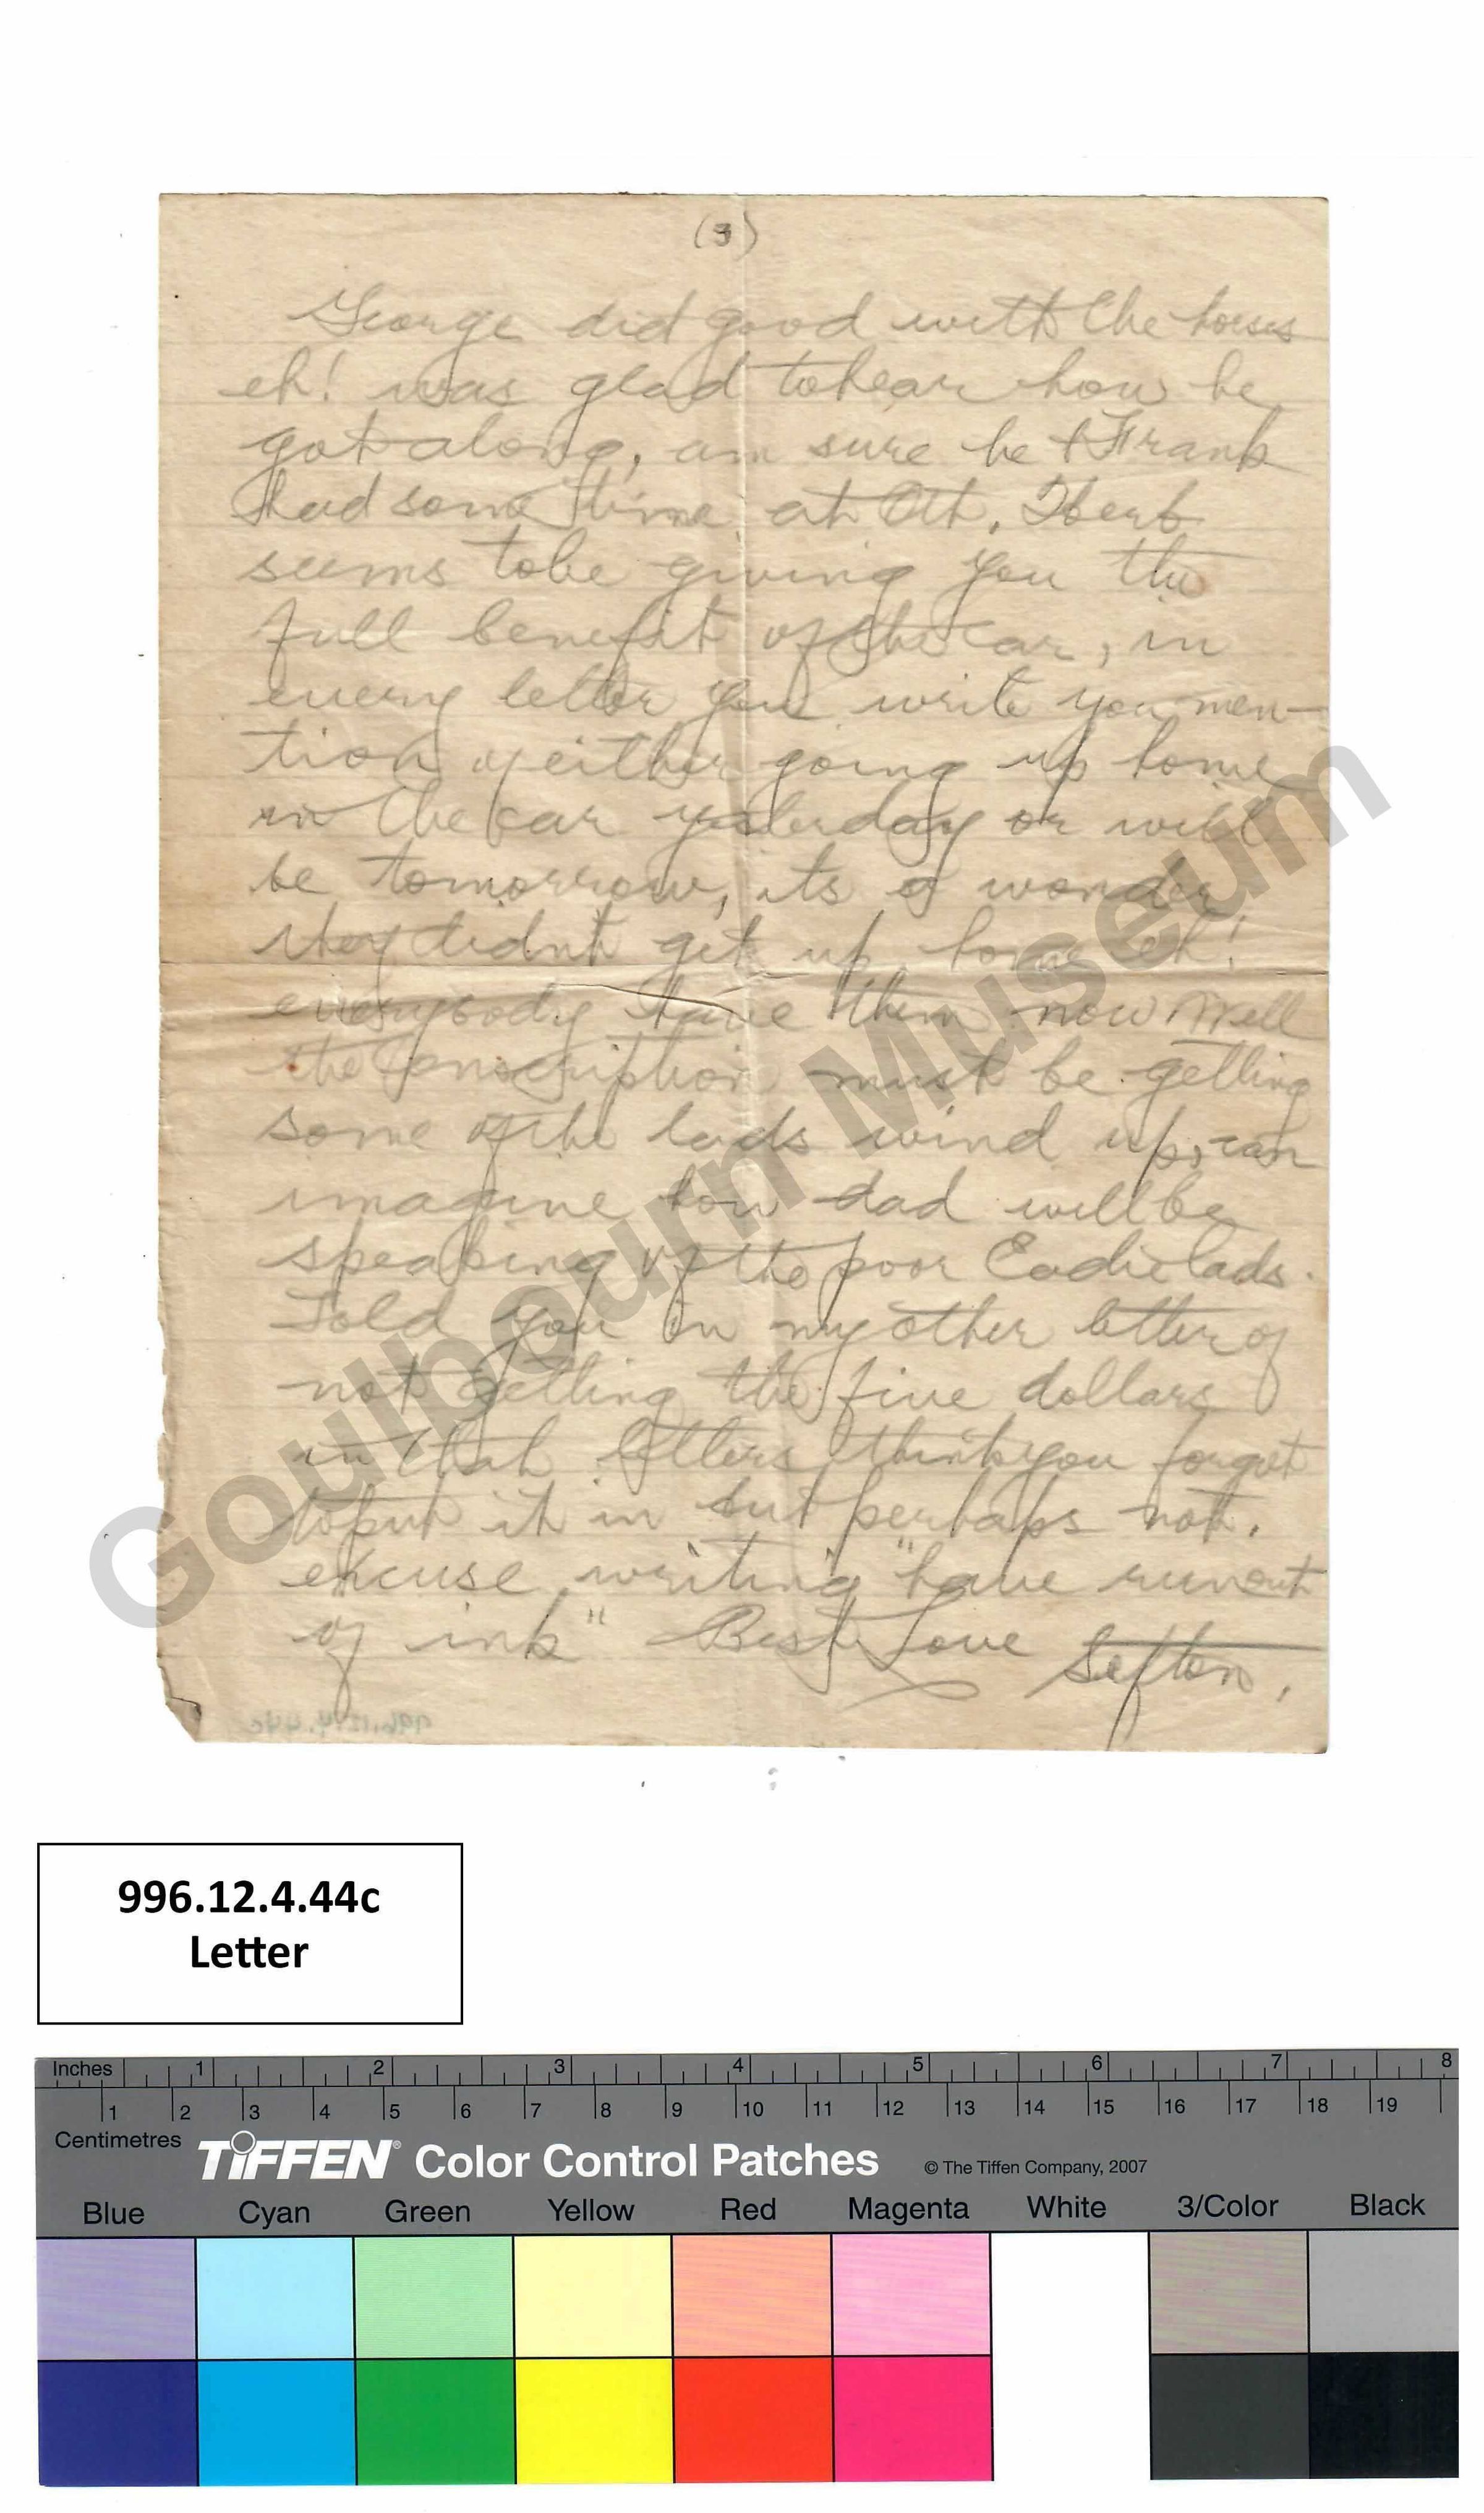 (3)
George did good with the horses
eh! was glad to hear how he
got along, am sure he & Frank
had some time at Ott. Herb
seems to be giving you the
full benefit of the car, in
every letter you write you men-
tion of either going up home
in the car yesterday or will
be tomorrow, its a wonder
they didnt get up home eh!
everybody have them now Well
the Conscription must be getting
some of the lads wind up, can
imagine how dad will be
speaking of the poor Eadie lads.
Told you in my other letter of
not getting the five dollars
in that letters think you forgot
to put it in but perhaps not.
excuse writing "have run out
of ink" Best Love Sefton.
996.12.4.44c
Goulbourn Museum
996.12.4.44c
Letter
Inches 1 2 3 4 5 6 7 8
1 2 3 4 5 6 7 8 9 10 11 12 13 14 15 16 17 18 19
Centimetres
TIFFEN® Color Control Patches © The Tiffen Company, 2007
Blue Cyan Green Yellow Red Magenta White 3/Color Black